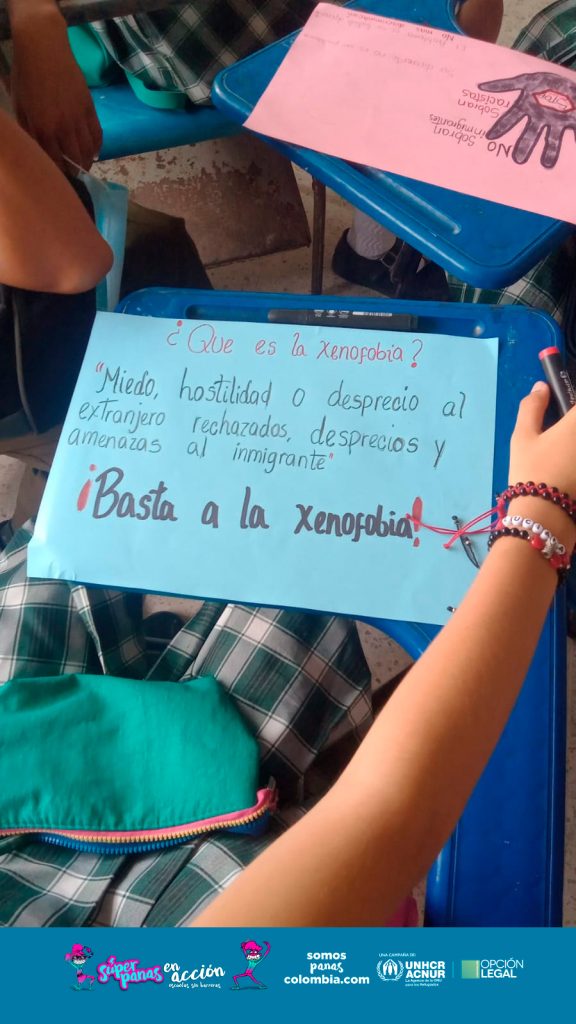 ¿Que es la xenofobia?
"Miedo, hostilidad o desprecio al
extranjero rechazados, desprecios y
amenazas al inmigrante"
¡Basta a la xenofobia!
NO
Sobran
inmigrantes
Sobran
racistas
STOP
No mas
súper
panas en
acción
escuelas sin barreras
somos
panas
colombia.com
UNA CAMPAÑA DE:
UNHCR
ACNUR
La Agencia de la ONU
para los Refugiados
OPCIÓN
LEGAL